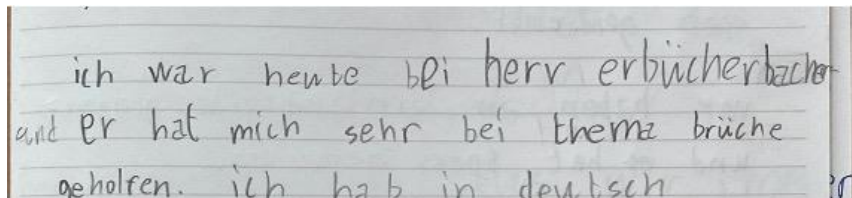 ich war heute bei herr erbücherbacher
und er hat mich sehr bei thema brüche
geholfen. ich hab in deutsch